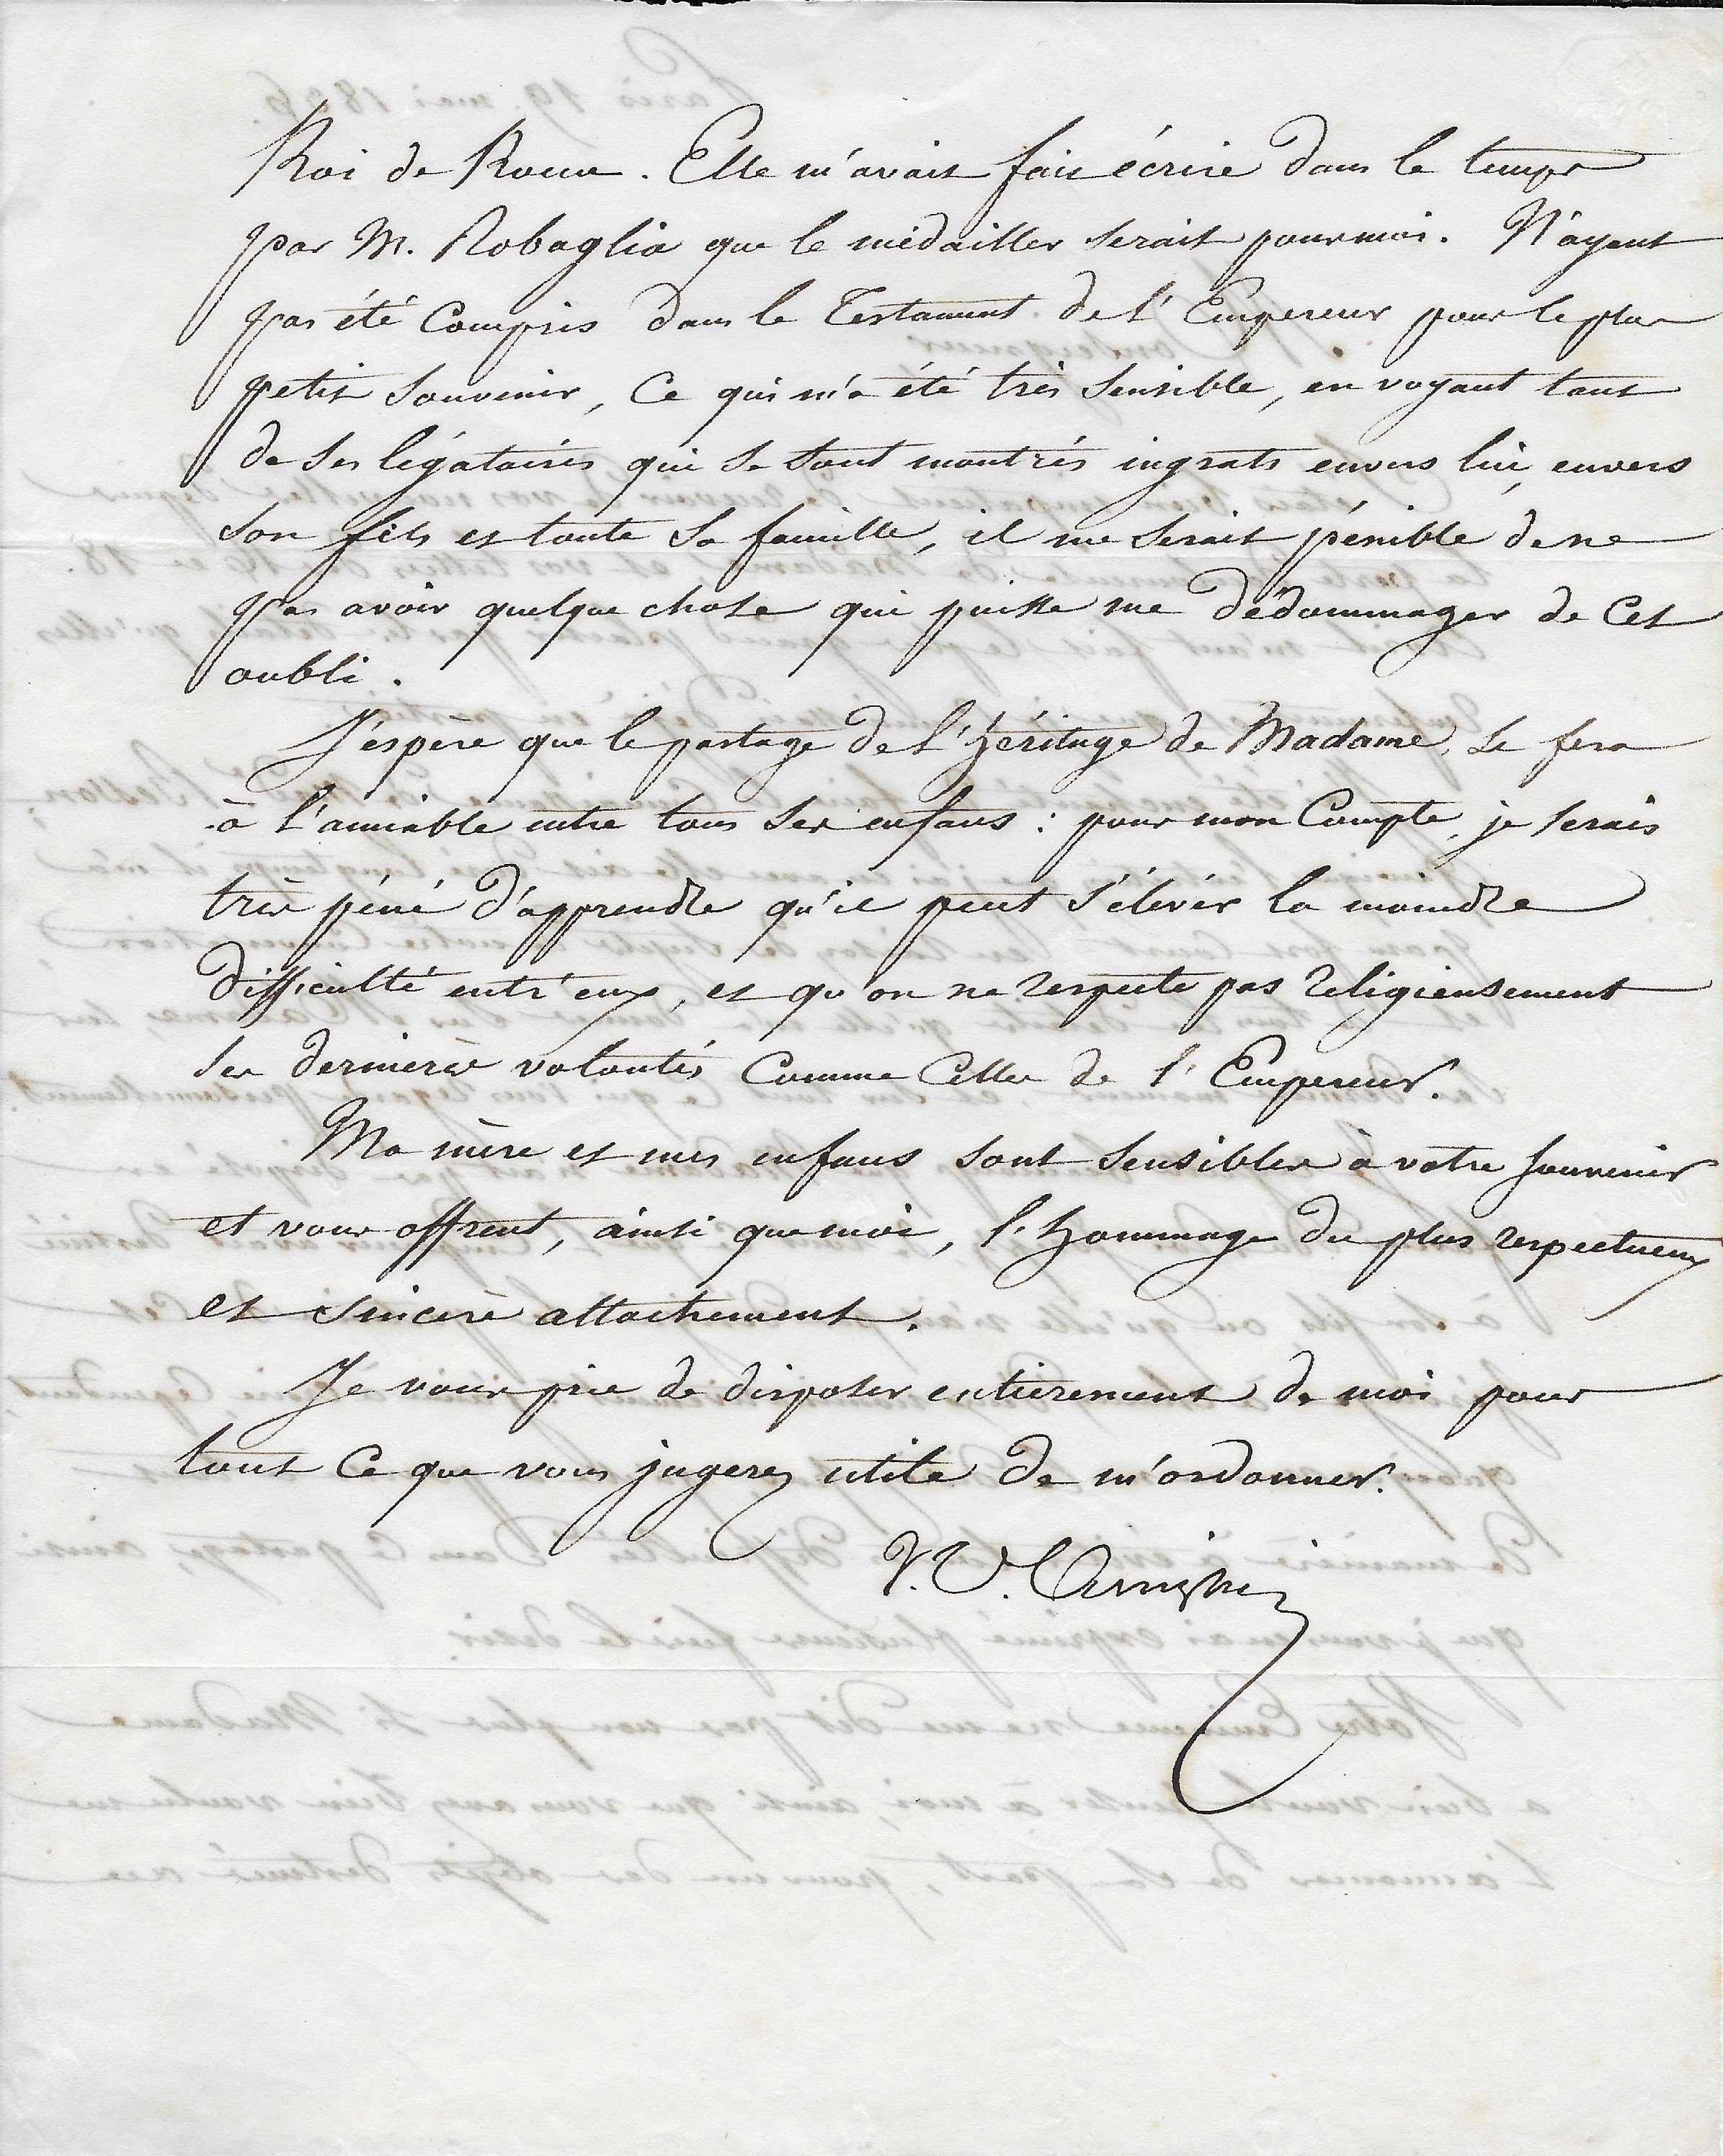 Roi de Rome. Elle m'avait fait écrire dans le temps
par M. Robaglia que le médailler serait pour moi. N'ayant
pas été Compris dans le Testament de l'Empereur pour le plus
petit Souvenir, Ce qui m'a été très Sensible, en voyant tant
de Ses légataires qui se sont montrés ingrats envers lui, envers
Son fils et toute Sa famille, il me serait pénible de ne
pas avoir quelque chose qui puisse me dédommager de Cet
oubli.
J'espère que le partage de l'héritage de Madame, se fera
à l'amiable entre tous Ses enfans : pour mon Compte, je serais
très péné d'apprendre qu'il peut s'élever la moindre
difficulté entr'eux, et qu'on ne respecte pas religieusement
Ses dernieres volontés Comme Celles de l'Empereur.
Ma mère et mes enfans sont sensibles à votre souvenir
et vous offrent, ainsi que moi, l'hommage du plus respectueux
et sincere attachement.
Je vous prie de disposer entierement de moi pour
tout Ce que vous jugerez utile de m'ordonner.